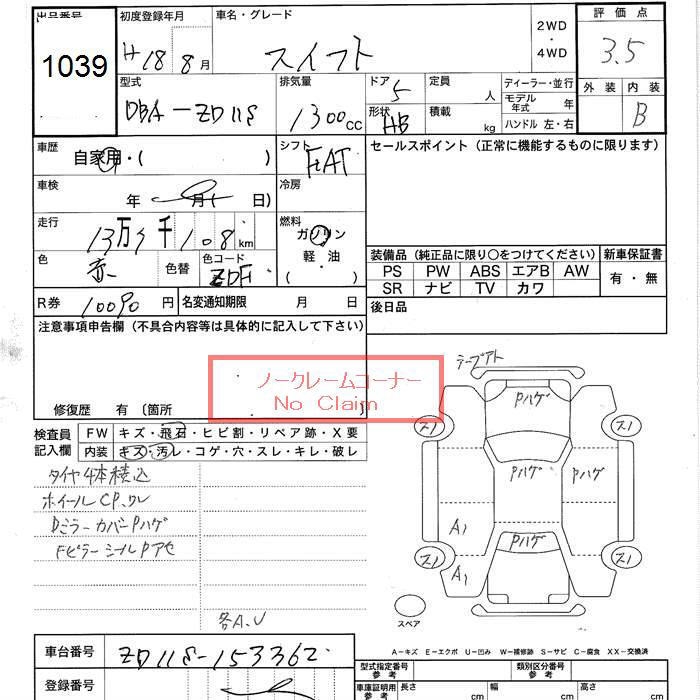 出品番号
1039
初度登録年月
H 18 8 月
車名・グレード
スイフト
2WD
・
4WD
評価点
3.5
外装 内装
B
型式
DBA-ZD11S
排気量
1300cc
ドア 5
形状 HB
定員 人
積載 kg
ディーラー・並行
モデル年式 年
ハンドル 左・右
車歴
自家用・( )
シフト FAT
セールスポイント(正常に機能するものに限ります)
車検
年 月( 日)
冷房
走行
km
燃料
ガソリン
軽・油
色
赤
色替
色コード
装備品(純正品に限り○をつけてください)
新車保証書
PS PW ABS エアB AW
SR ナビ TV カワ
有・無
R券 10090 円
名変通知期限 月 日
後日品
注意事項申告欄(不具合内容等は具体的に記入して下さい)
ノークレームコーナー
No Claim
修復歴 有〔箇所
検査員
記入欄
FW キズ・飛石・ヒビ割・リペア跡・X要
内装 キズ・汚レ・コゲ・穴・スレ・キレ・破レ
タイヤ4本積込
ホイールCP、ワレ
DミラーカバーPハゲ
FピラーシールPアセ
各A、U
テープアト
Pハゲ
Pハゲ
Pハゲ
Pハゲ
A1
A1
スペア
A-キズ E-エクボ U-凹み W-補修跡 S-サビ C-腐食 XX-交換済
車台番号 ZD11S-153362
登録番号
型式指定番号
参考
類別区分番号
参考
車庫証明用
参考
長さ cm
幅 cm
高さ cm